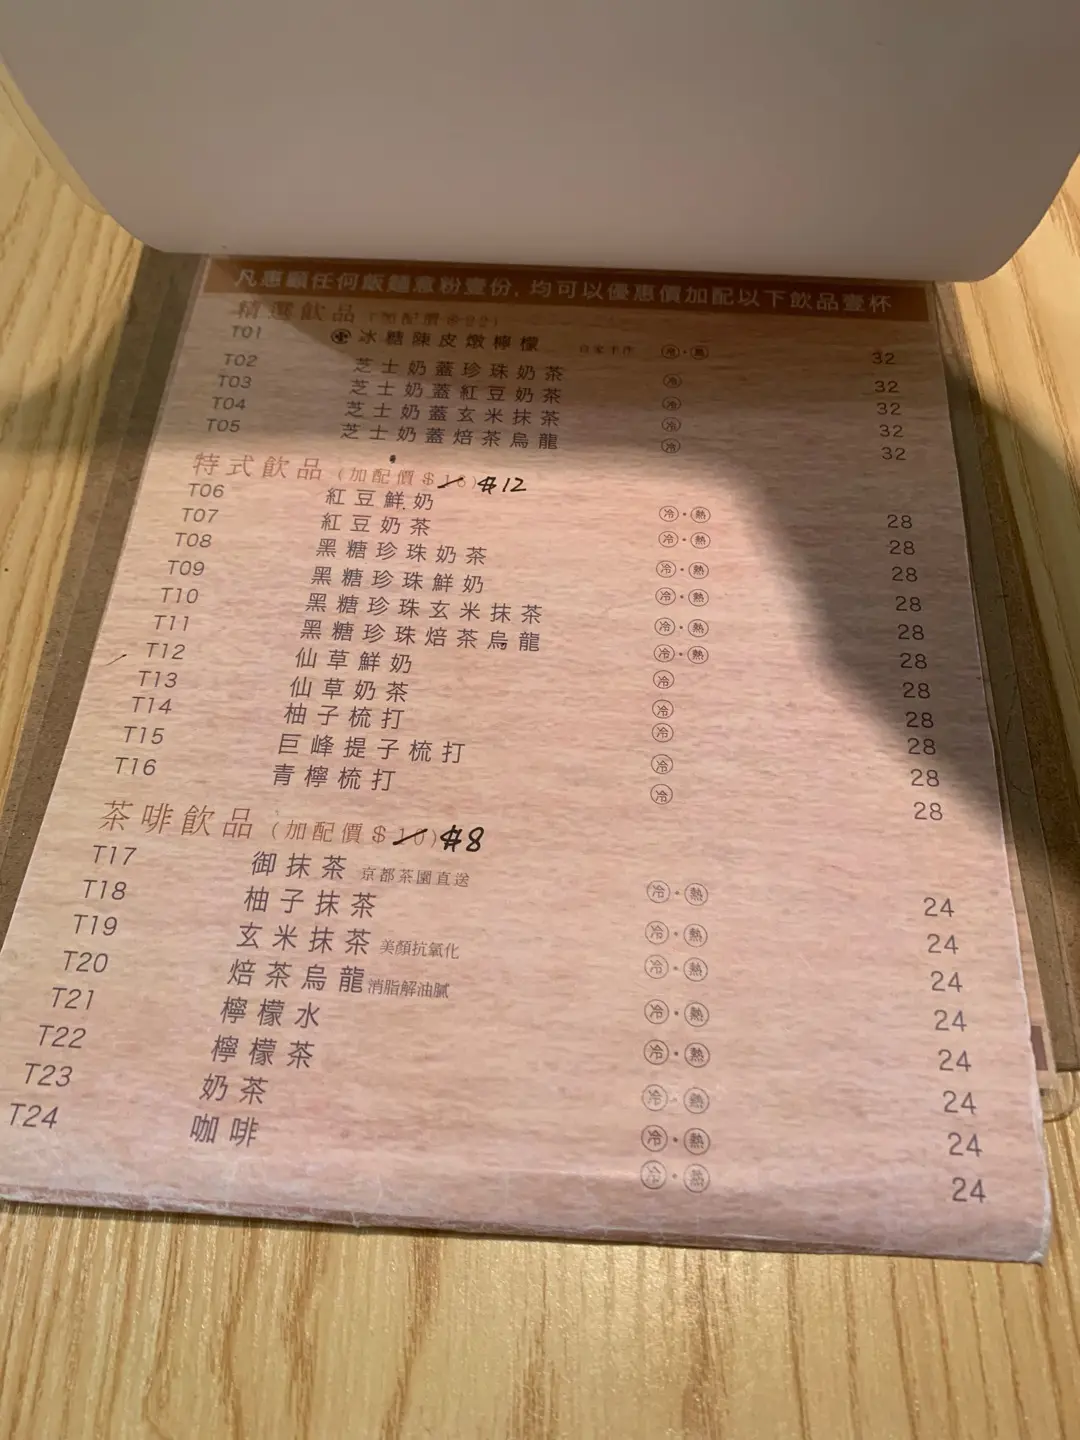 凡惠顧任何飯麵意粉壹份, 均可以優惠價加配以下飲品壹杯
精選飲品 (加配價$22)
T01 冰糖陳皮燉檸檬 自家手作 冷・熱 32
T02 芝士奶蓋珍珠奶茶 冷 32
T03 芝士奶蓋紅豆奶茶 冷 32
T04 芝士奶蓋玄米抹茶 冷 32
T05 芝士奶蓋焙茶烏龍 冷 32
特式飲品 (加配價$16) $12
T06 紅豆鮮奶 冷・熱 28
T07 紅豆奶茶 冷・熱 28
T08 黑糖珍珠奶茶 冷・熱 28
T09 黑糖珍珠鮮奶 冷・熱 28
T10 黑糖珍珠玄米抹茶 冷・熱 28
T11 黑糖珍珠焙茶烏龍 冷・熱 28
T12 仙草鮮奶 冷 28
T13 仙草奶茶 冷 28
T14 柚子梳打 冷 28
T15 巨峰提子梳打 冷 28
T16 青檸梳打 冷 28
茶啡飲品 (加配價$10) $8
T17 御抹茶 京都茶園直送 冷・熱 24
T18 柚子抹茶 冷・熱 24
T19 玄米抹茶 美顏抗氧化 冷・熱 24
T20 焙茶烏龍 消脂解油膩 冷・熱 24
T21 檸檬水 冷・熱 24
T22 檸檬茶 冷・熱 24
T23 奶茶 冷・熱 24
T24 咖啡 冷・熱 24